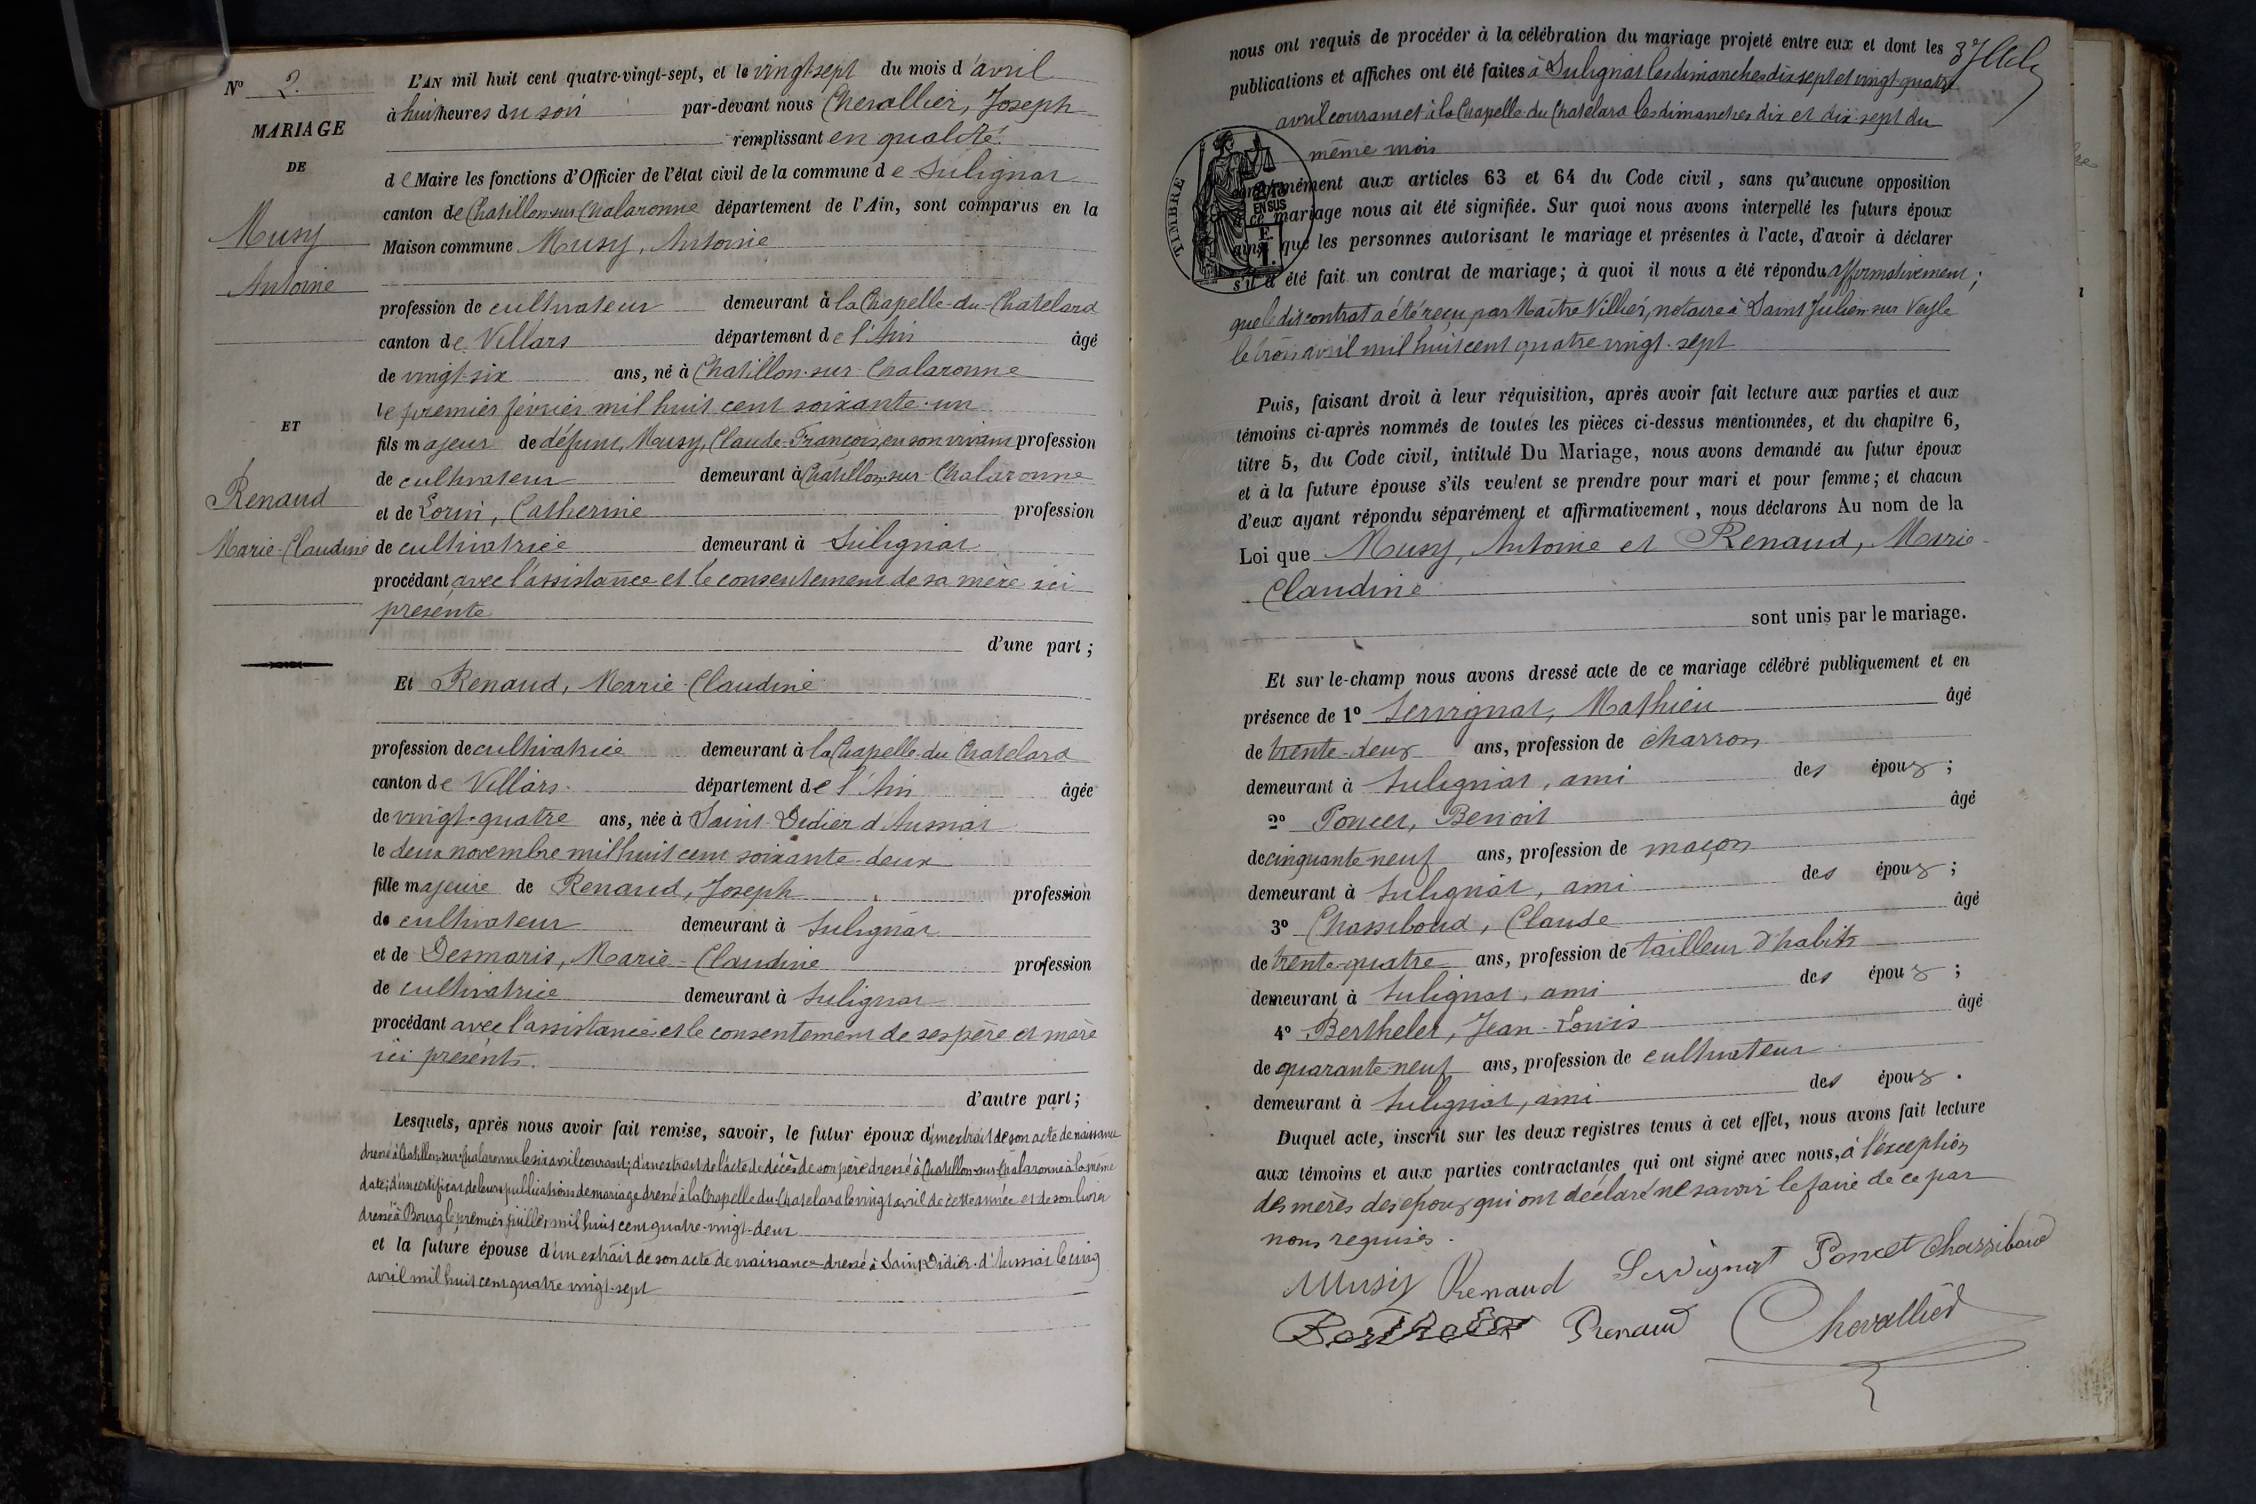 N° 2.
MARIAGE
DE
Musy
Antoine
ET
Renaud
Marie-Claudine
L'AN mil huit cent quatre-vingt-sept, et le vingt-sept du mois d'avril
à huit heures du soir par-devant nous Chevallier, Joseph
remplissant en qualité
de Maire les fonctions d'Officier de l'état civil de la commune de Sulignat
canton de Chatillon-sur-Chalaronne département de l'Ain, sont comparus en la
Maison commune Musy, Antoine
profession de cultivateur demeurant à la Chapelle-du-Chatelard
canton de Villars département de l'Ain âgé
de vingt-six ans, né à Chatillon-sur-Chalaronne
le premier février mil huit cent soixante-un
fils majeur de défunt Musy, Claude-François, en son vivant profession
de cultivateur demeurant à Chatillon-sur-Chalaronne
et de Lorin, Catherine profession
de cultivatrice demeurant à Sulignat
procédant avec l'assistance et le consentement de sa mère ici
présente
d'une part ;
Et Renaud, Marie-Claudine
profession de cultivatrice demeurant à la Chapelle-du-Chatelard
canton de Villars département de l'Ain âgée
de vingt-quatre ans, née à Saint-Didier d'Aussiat
le deux novembre mil huit cent soixante-deux
fille majeure de Renaud, Joseph profession
de cultivateur demeurant à Sulignat
et de Desmaris, Marie-Claudine profession
de cultivatrice demeurant à Sulignat
procédant avec l'assistance et le consentement de ses père et mère
ici présents.
d'autre part ;
Lesquels, après nous avoir fait remise, savoir, le futur époux d'un extrait de son acte de naissance
dressé à Chatillon-sur-Chalaronne le six avril courant; d'un extrait de l'acte de décès de son père dressé à Chatillon-sur-Chalaronne à la même
date; d'un certificat de leurs publications de mariage dressé à la Chapelle-du-Chatelard le vingt avril de cette année et de son livret
dressé à Bourg le premier juillet mil huit cent quatre-vingt-deux
et la future épouse d'un extrait de son acte de naissance dressé à Saint-Didier-d'Aussiat le cinq
avril mil huit cent quatre vingt-sept
nous ont requis de procéder à la célébration du mariage projeté entre eux et dont les
publications et affiches ont été faites à Sulignat les dimanches dix sept et vingt-quatre
avril courant et à la Chapelle-du-Chatelard les dimanches dix et dix-sept du
même mois
conformément aux articles 63 et 64 du Code civil, sans qu'aucune opposition
à ce mariage nous ait été signifiée. Sur quoi nous avons interpellé les futurs époux
ainsi que les personnes autorisant le mariage et présentes à l'acte, d'avoir à déclarer
s'il a été fait un contrat de mariage; à quoi il nous a été répondu affirmativement;
que le dit contrat a été reçu par Maître Villier, notaire à Saint Julien-sur Veyle
le trois avril mil huit cent quatre vingt-sept
TIMBRE
EN SUS
E.
1.
Puis, faisant droit à leur réquisition, après avoir fait lecture aux parties et aux
témoins ci-après nommés de toutes les pièces ci-dessus mentionnées, et du chapitre 6,
titre 5, du Code civil, intitulé Du Mariage, nous avons demandé au futur époux
et à la future épouse s'ils veulent se prendre pour mari et pour femme; et chacun
d'eux ayant répondu séparément et affirmativement, nous déclarons Au nom de la
Loi que Musy, Antoine et Renaud, Marie-
Claudine
sont unis par le mariage.
Et sur-le-champ nous avons dressé acte de ce mariage célébré publiquement et en
présence de 1° Servignat, Mathieu âgé
de trente-deux ans, profession de charron
demeurant à Sulignat, ami des époux ;
2° Poncet, Benoit âgé
de cinquante neuf ans, profession de maçon
demeurant à Sulignat, ami des époux ;
3° Chassiboud, Claude âgé
de trente-quatre ans, profession de tailleur d'habits
demeurant à Sulignat, ami des époux ;
4° Berthelet, Jean-Louis âgé
de quarante-neuf ans, profession de cultivateur
demeurant à Sulignat, ami des époux.
Duquel acte, inscrit sur les deux registres tenus à cet effet, nous avons fait lecture
aux témoins et aux parties contractantes qui ont signé avec nous, à l'exception
des mères des époux qui ont déclaré ne savoir le faire de ce par
nous requises.
Musy Renaud Servignat Poncet Chassiboud
Berthelet Renaud Chevallier